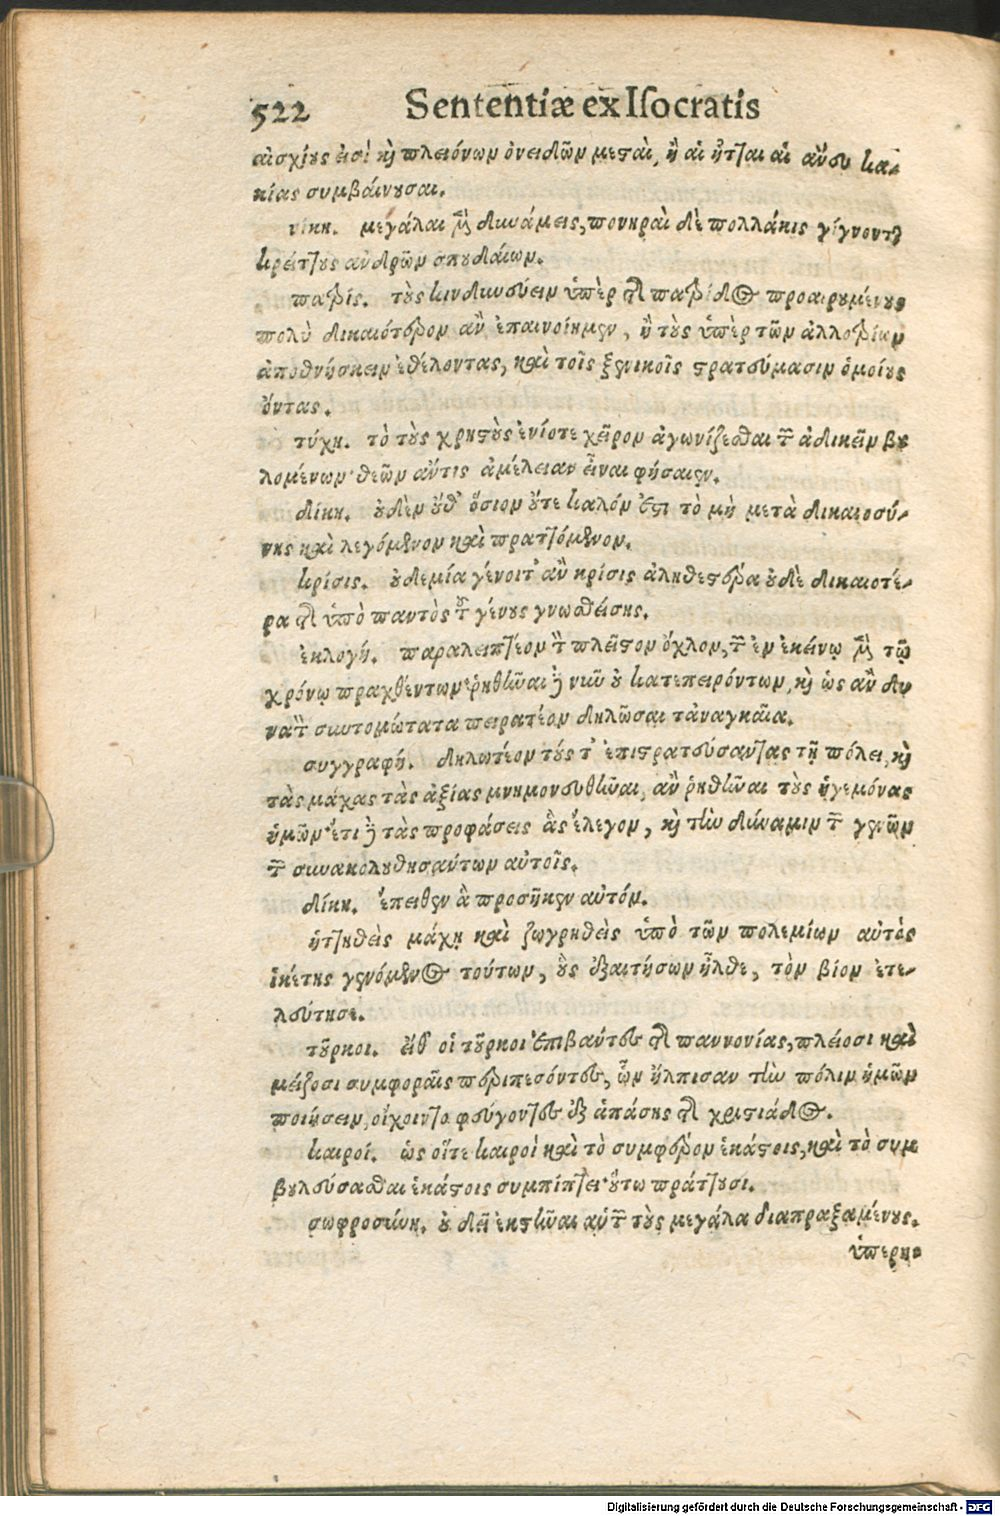 522 Sententiæ ex Iſocratis
αἰσχίους εἰσὶ καὶ πλειόνων ὀνειδῶν μεσταὶ, ἢ αἱ ἧτται αἱ ἄνευ κα-
κίας συμβαίνουσαι.
νίκη. μεγάλαι μὲν δυνάμεις, πονηραὶ δὲ πολλάκις γίγνονται
κρείττους ἀνδρῶν σπουδαίων.
πατρίς. τοὺς κινδυνεύειν ὑπὲρ τῆς πατρίδος προαιρουμένους
πολὺ δικαιότερον ἂν ἐπαινοίημεν, ἢ τοὺς ὑπὲρ τῶν ἀλλοτρίων
ἀποθνήσκειν ἐθέλοντας, καὶ τοῖς ξενικοῖς στρατεύμασιν ὁμοίους
ὄντας.
τύχη. τὸ τοὺς χρηστοὺς ἐνίοτε χεῖρον ἀγωνίζεσθαι τῶν ἀδικεῖν βου
λομένων· θεῶν ἄν τις ἀμέλειαν εἶναι φήσαιεν.
δίκη. οὐδὲν οὔθ' ὅσιον οὔτε καλόν ἐστι τὸ μὴ μετὰ δικαιοσύ-
νης καὶ λεγόμενον καὶ πραττόμενον.
κρίσις. οὐδεμία γένοιτ' ἂν κρίσις ἀληθεστέρα οὐδὲ δικαιοτέ-
ρα τῆς ὑπὸ παντὸς τοῦ γένους γνωσθείσης.
ἐκλογή. παραλειπτέον τὸν πλεῖστον ὄχλον, τῶν ἐν ἐκείνῳ μὲν τῷ
χρόνῳ πραχθέντων ῥηθῆναι δὲ νῦν οὐ κατεπειγόντων, καὶ ὡς ἂν δυ
νατὸν συντομώτατα πειρατέον δηλῶσαι τἀναγκαῖα.
συγγραφή. δηλωτέον τούς τ' ἐπιστρατεύσαντας τῇ πόλει, καὶ
τὰς μάχας τὰς ἀξίας μνημονευθῆναι, ἂν ῥηθῆναι τοὺς ἡγεμόνας
ἡμῶν· ἔτι δὲ τὰς προφάσεις ἃς ἔλεγον, καὶ τὴν δύναμιν τῶν γενῶν
τῶν συνακολουθησάντων αὐτοῖς.
δίκη. ἔπειθεν ἃ προσῆκεν αὐτόν.
ἡττηθεὶς μάχῃ καὶ ζωγρηθεὶς ὑπὸ τῶν πολεμίων αὐτὸς
ἱκέτης γενόμενος τούτων, οὓς ἐξαιτήσων ἦλθε, τὸν βίον ἐτε-
λεύτησε.
τοῦρκοι. εἶθ' οἱ τοῦρκοι ἐπιβάντες τῆς παννονίας, πλείοσι καὶ
μείζοσι συμφοραῖς περιπεσόντες, ὧν ἤλπισαν τὴν πόλιν ἡμῶν
ποιήσειν, οἴχοιντο φεύγοντες ἐξ ἁπάσης τῆς χριστιάδος.
καιροί. ὡς οἵ τε καιροὶ καὶ τὸ συμφέρον ἑκάστοις, καὶ τὸ συμ
βουλεύσασθαι ἑκάστοις συμπίπτει· οὕτω πράττουσι.
σωφροσύνη. οὐ δεῖ ἐκστῆναι αὑτῶν τοὺς μεγάλα διαπραξαμένους.
ὑπερη-
Digitalisierung gefördert durch die Deutsche Forschungsgemeinschaft - DFG